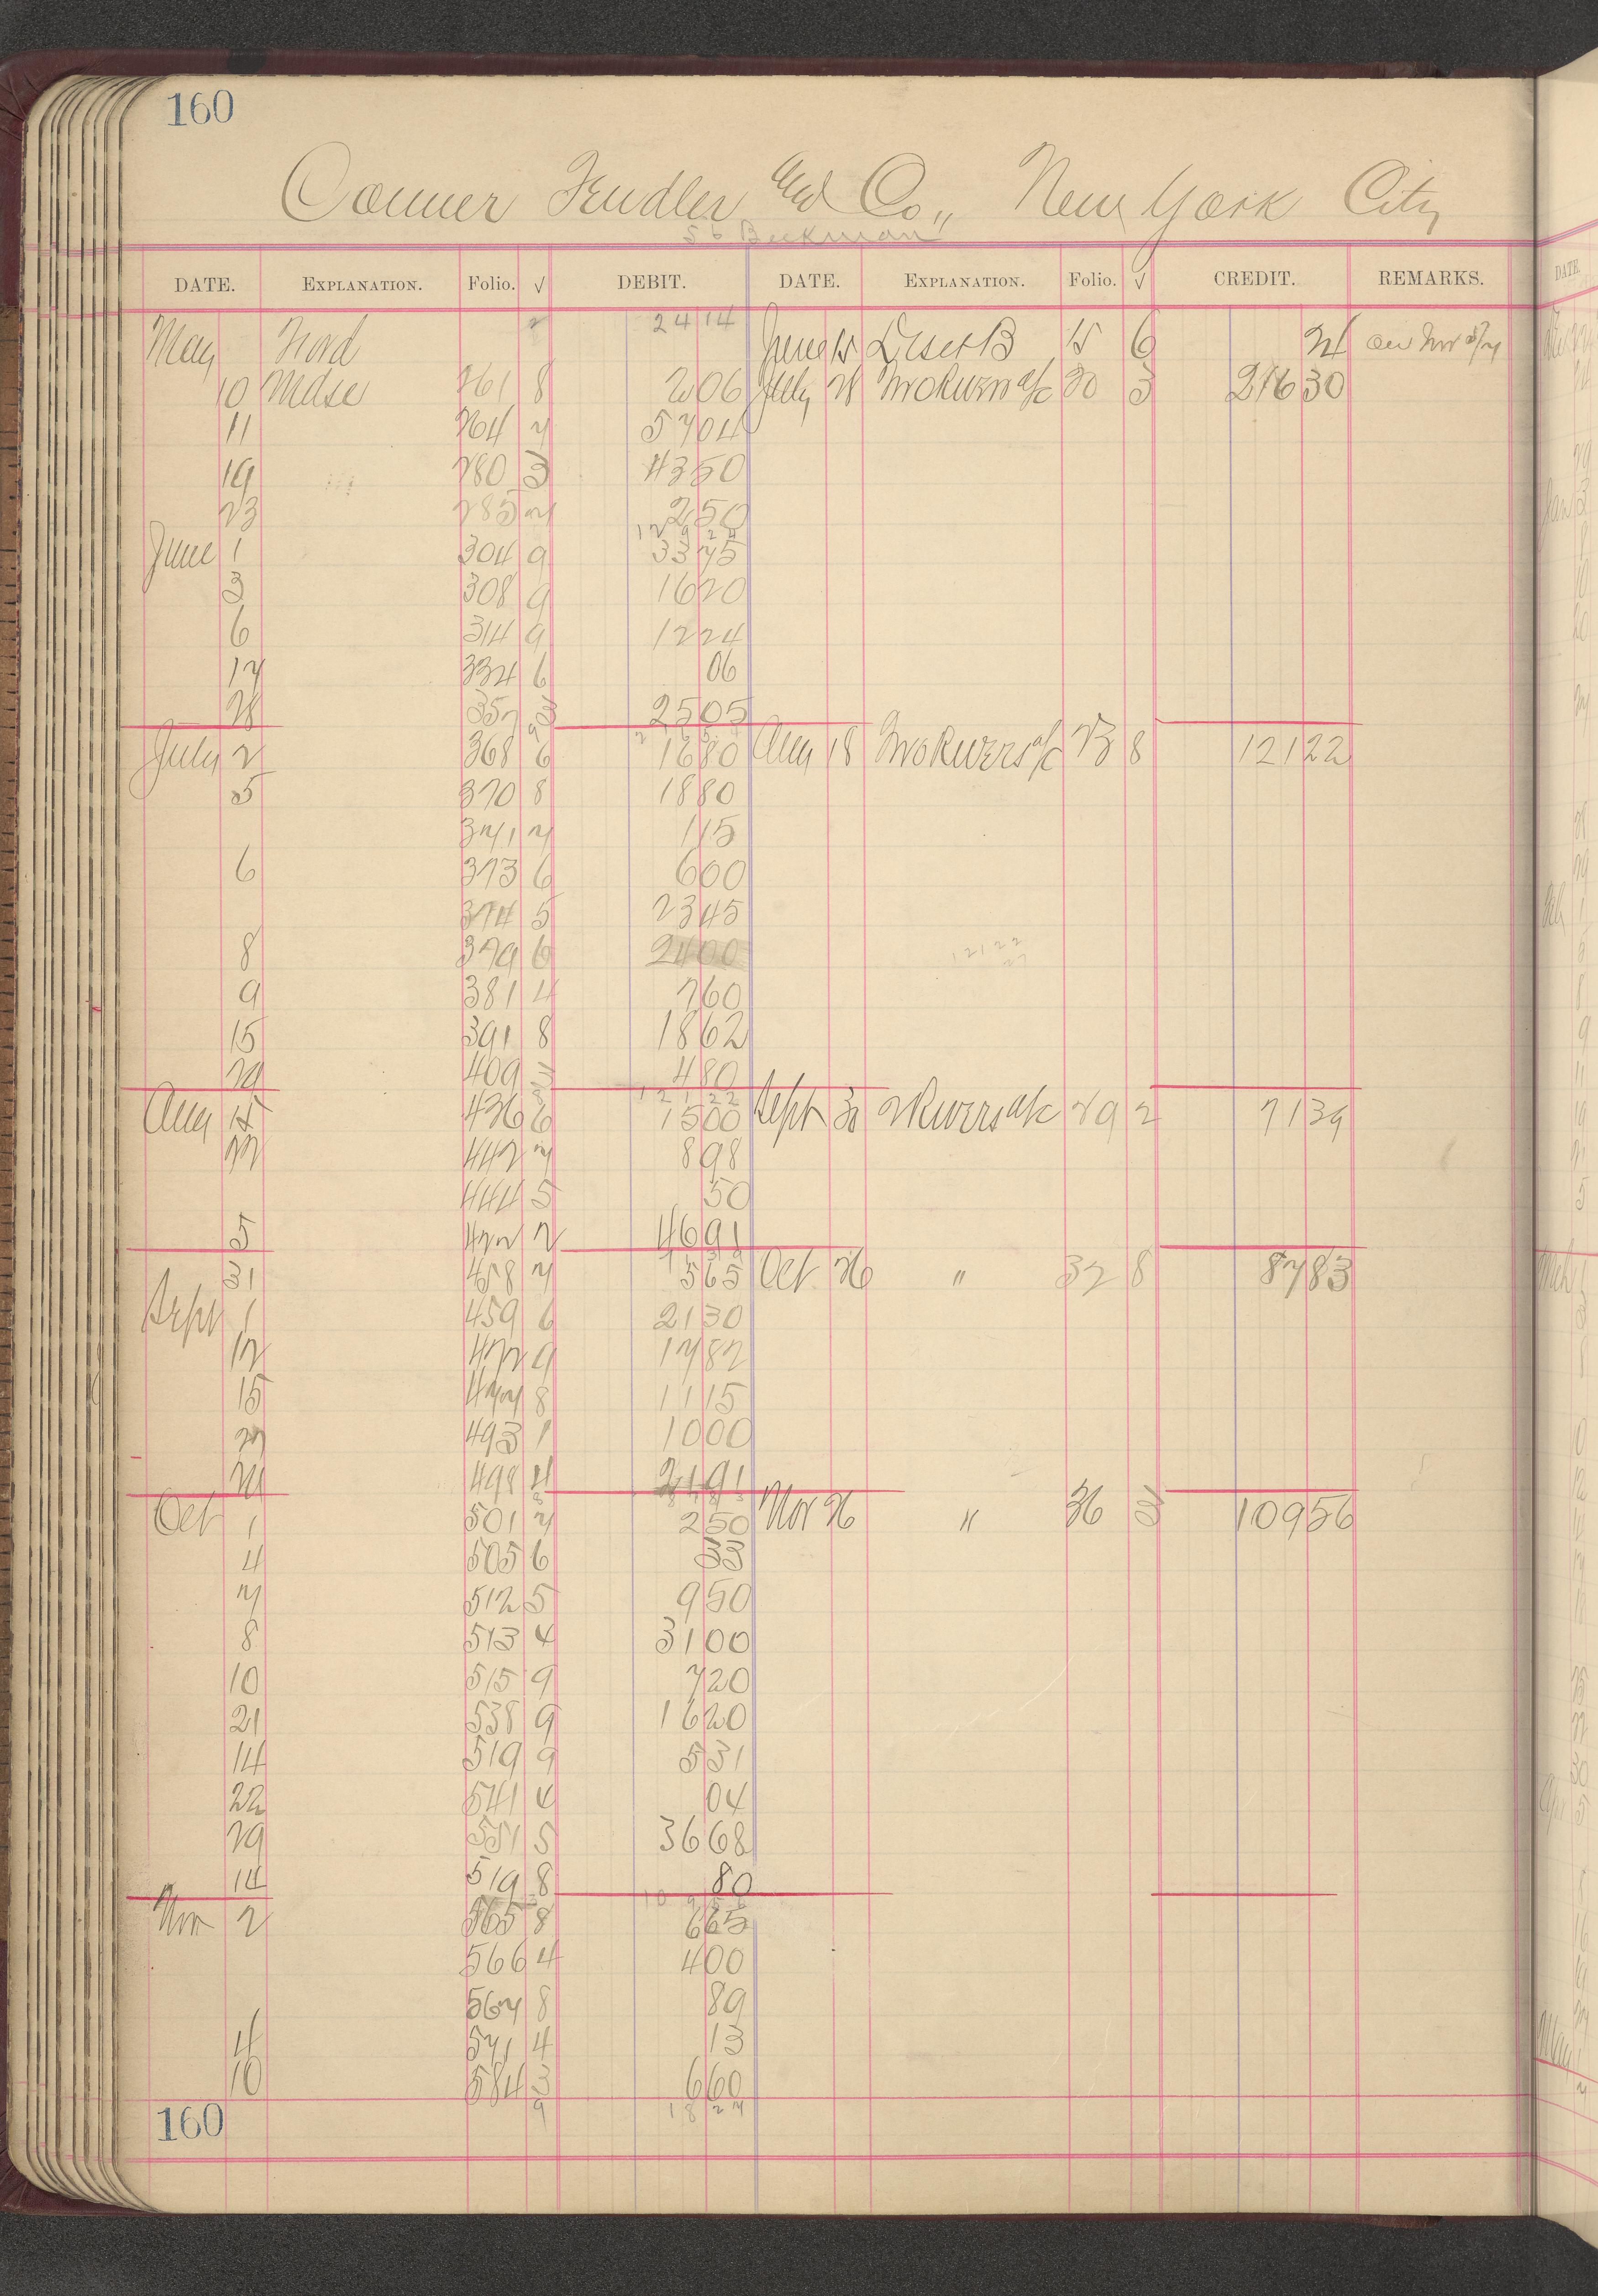 160
Conner Fendler and Co,, New York City
56 Beekman
DATE. EXPLANATION. Folio. √ DEBIT. DATE. EXPLANATION. Folio. √ CREDIT. REMARKS.
May Ford 2414 June 15 Disct B 15 6 24
10 Mdse 261 8 206 July 28 20 3 216 30
11 264 7 5704
19 280 3 4350
23 285 7 250
June 1 304 9 3375
3 308 9 1620
6 314 9 1224
17 334 6 06
28 357 3 2505
July 2 368 6 1680 Aug 18 23 8 121 22
5 370 8 1880
371 7 115
6 373 6 600
374 5 2345
8 379 6 2400
12122
9 381 4 760
15 391 8 1862
29 409 3 480
12122
Aug 15 436 6 1500 Sept 30 29 2 71 39
22 442 7 898
444 5 50
5 422 2 4691
31 458 7 565 Oct 26 " 32 8 87 83
Sept 1 459 6 2130
12 472 9 1782
15 477 8 1115
27 493 1 1000
498 4 2191
Oct 1 501 7 250 Nov 26 " 36 3 109 56
4 505 6 33
7 512 5 950
8 513 4 3100
10 515 9 720
21 538 9 1620
14 519 9 531
22 541 4 04
29 551 5 3668
14 519 8 80
Nov 2 565 8 665
566 4 400
567 8 89
4 571 4 13
10 584 3 660
9 1827
160